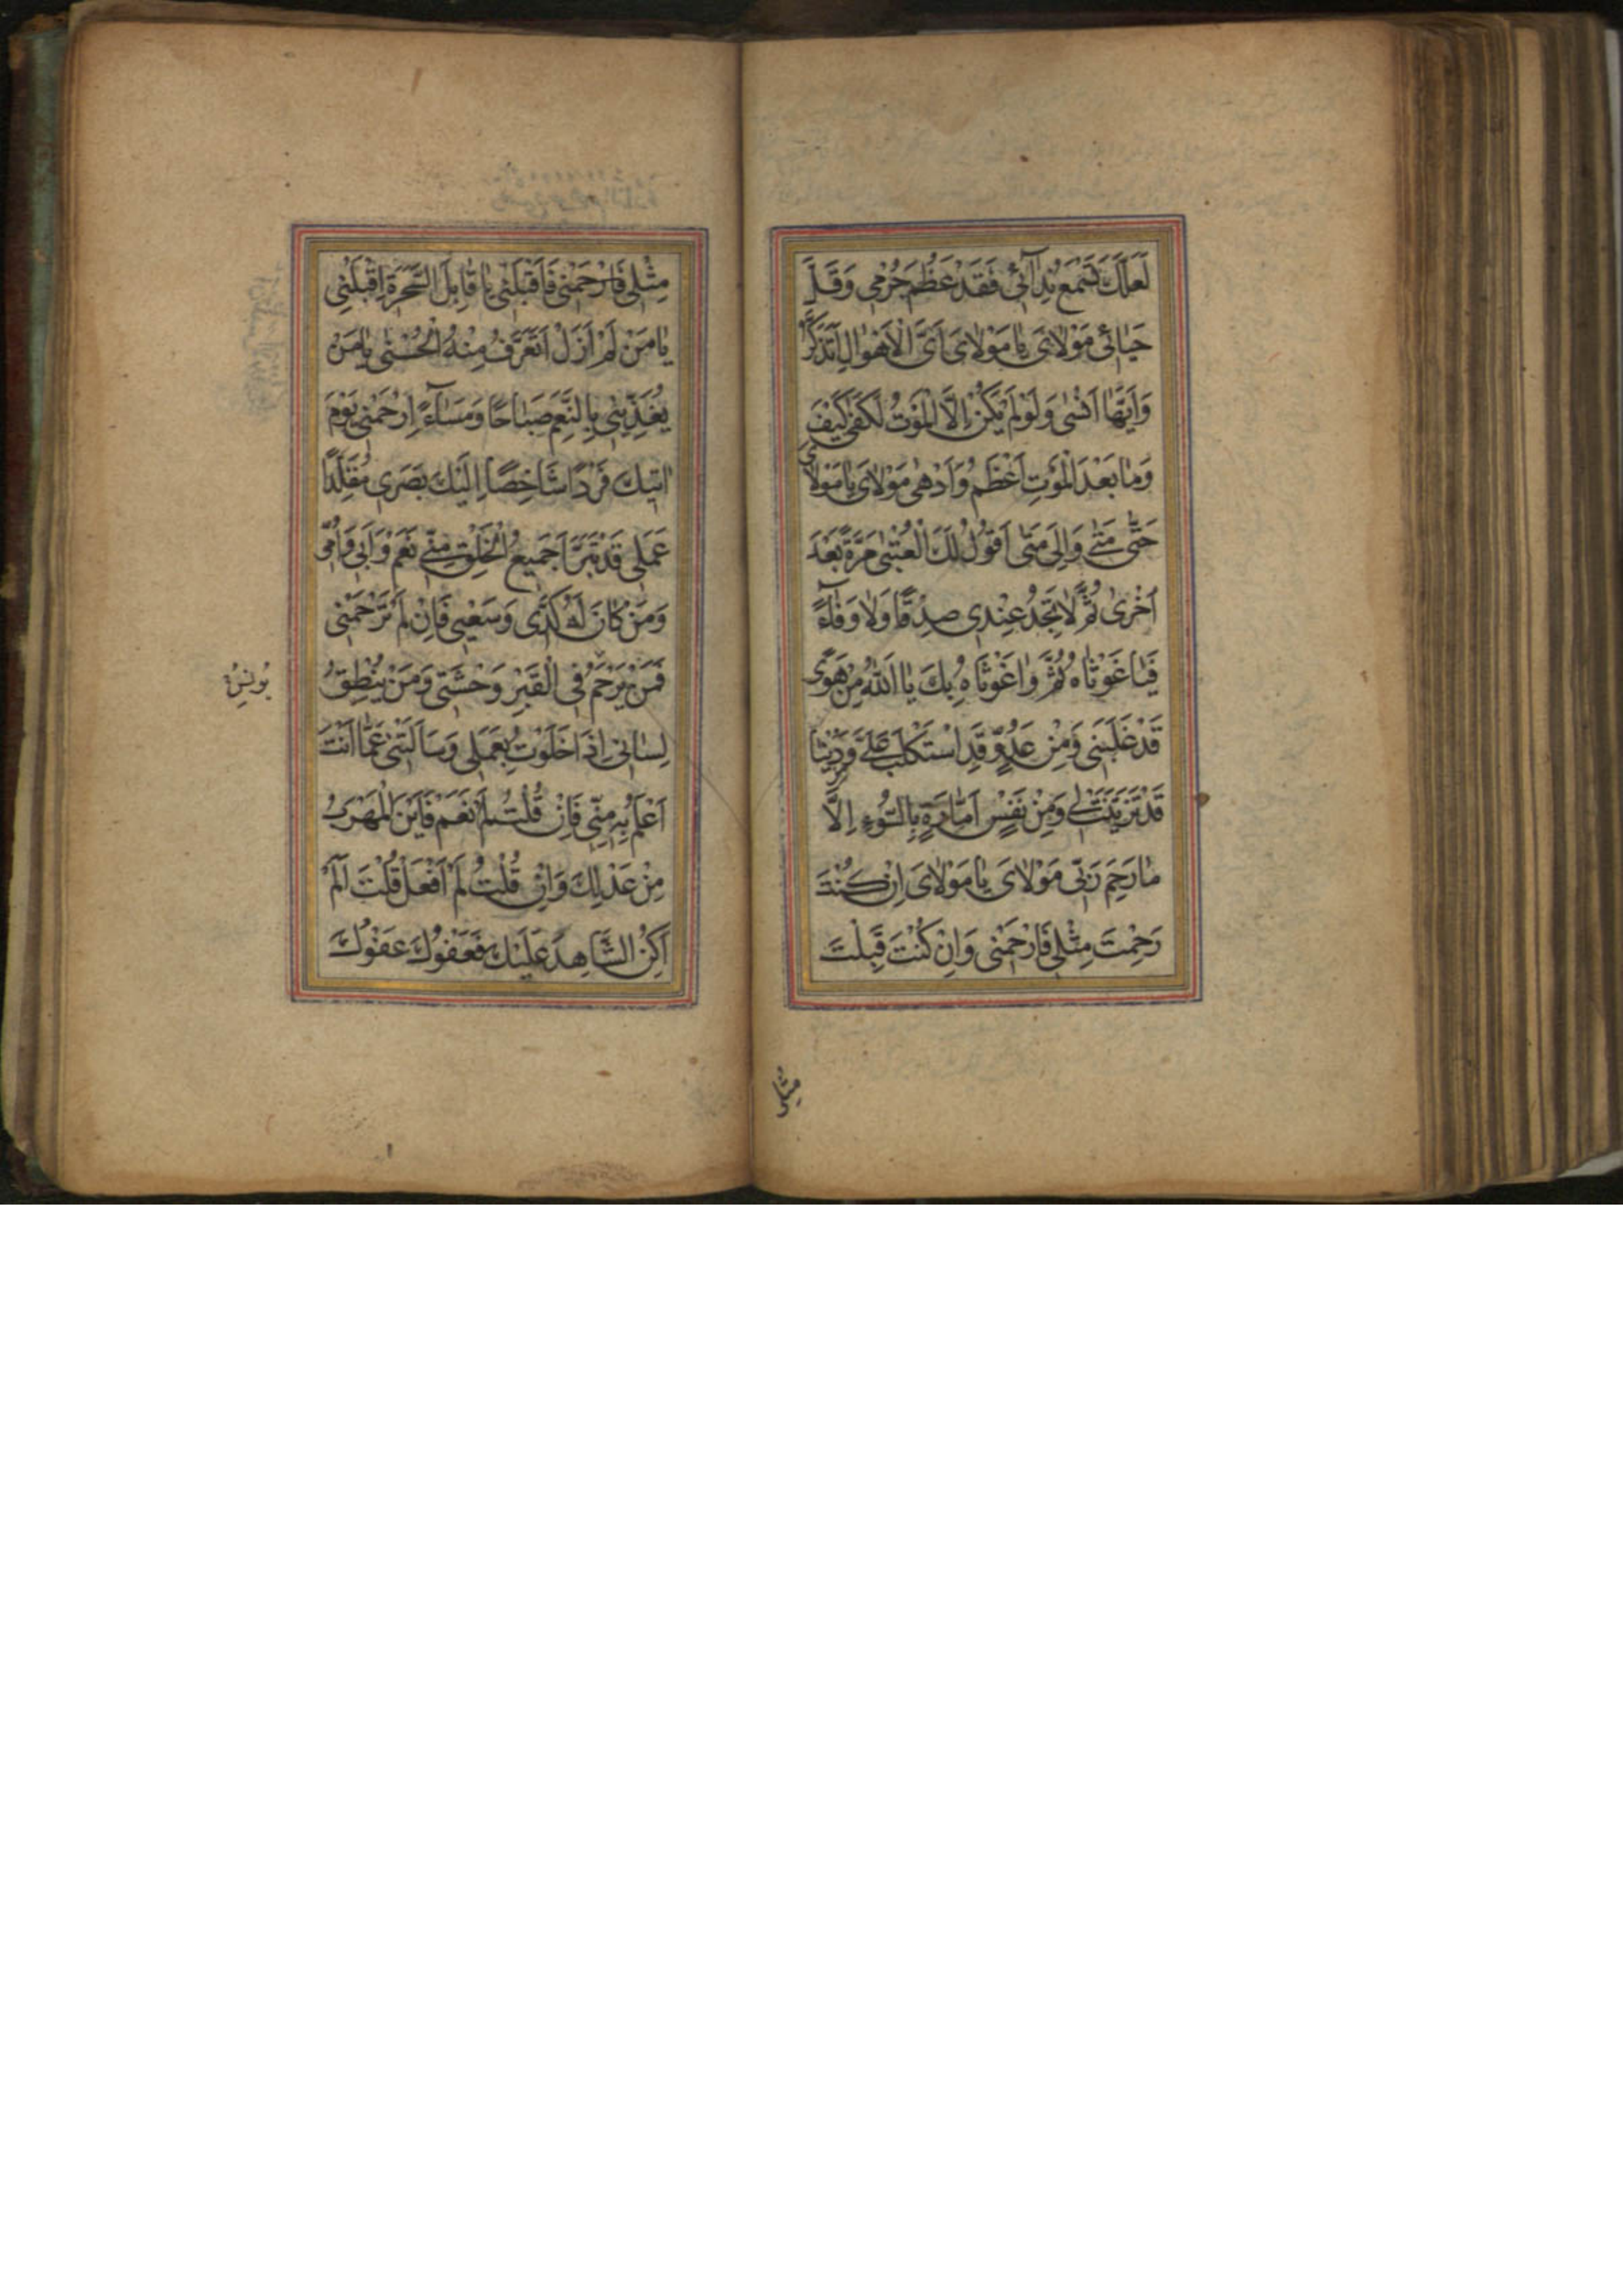 لَعَلَّكَ تَسْمَعُ نِدَآئِي فَقَدْ عَظُمَ جُرْمِي وَقَلَّ
حَيَائِي مَوْلَايَ يَا مَوْلَايَ اَيَّ الْاَهْوَالِ اَتَذَكَّرُ
وَاَيَّهَا اَنْسٰى وَلَوْ لَمْ يَكُنْ اِلَّا الْمَوْتُ لَكَفٰى كَيْفَ
وَمَا بَعْدَ الْمَوْتِ اَعْظَمُ وَاَدْهٰى مَوْلَايَ يَا مَوْلَايَ
حَتّٰى مَتٰى وَاِلٰى مَتٰى اَقُولُ لَكَ الْعُتْبٰى مَرَّةً بَعْدَ
اُخْرٰى ثُمَّ لَا تَجِدُ عِنْدِي صِدْقًا وَلَا وَفَآءً
فَيَا غَوْثَاهُ ثُمَّ وَاغَوْثَاهُ بِكَ يَا اَللّٰهُ مِنْ هَوًى
قَدْ غَلَبَنِي وَمِنْ عَدُوٍّ قَدِ اسْتَكْلَبَ عَلَيَّ وَمِنْ دُنْيَا
قَدْ تَزَيَّنَتْ لِي وَمِنْ نَفْسٍ اَمَّارَةٍ بِالسُّوءِ اِلَّا
مَا رَحِمَ رَبِّي مَوْلَايَ يَا مَوْلَايَ اِنْ كُنْتَ
رَحِمْتَ مِثْلِي فَارْحَمْنِي وَاِنْ كُنْتَ قَبِلْتَ
مِثْلِي
مِثْلِي فَارْحَمْنِي فَاقْبَلْنِي يَا قَابِلَ السَّحَرَةِ اِقْبَلْنِي
يَا مَنْ لَمْ اَزَلْ اَتَعَرَّفُ مِنْهُ الْحُسْنٰى يَا مَنْ
يُغَذِّينِي بِالنِّعَمِ صَبَاحًا وَمَسَآءً اِرْحَمْنِي يَوْمَ
اٰتِيكَ فَرْدًا شَاخِصًا اِلَيْكَ بَصَرِي مُقَلَّدًا
عَمَلِي قَدْ تَبَرَّاَ جَمِيعُ الْخَلْقِ مِنِّي نَعَمْ وَاَبِي وَاُمِّي
وَمَنْ كَانَ لَهُ كَدِّي وَسَعْيِي فَاِنْ لَمْ تَرْحَمْنِي
فَمَنْ يَرْحَمُ فِي الْقَبْرِ وَحْشَتِي وَمَنْ يُنْطِقُ
لِسَانِي اِذَا خَلَوْتُ بِعَمَلِي وَسَاَلْتَنِي عَمَّا اَنْتَ
اَعْلَمُ بِهِ مِنِّي فَاِنْ قُلْتُ نَعَمْ فَاَيْنَ الْمَهْرَبُ
مِنْ عَدْلِكَ وَاِنْ قُلْتُ لَمْ اَفْعَلْ قُلْتَ اَلَمْ
اَكُنِ الشَّاهِدَ عَلَيْكَ فَعَفْوُكَ عَفْوُكَ